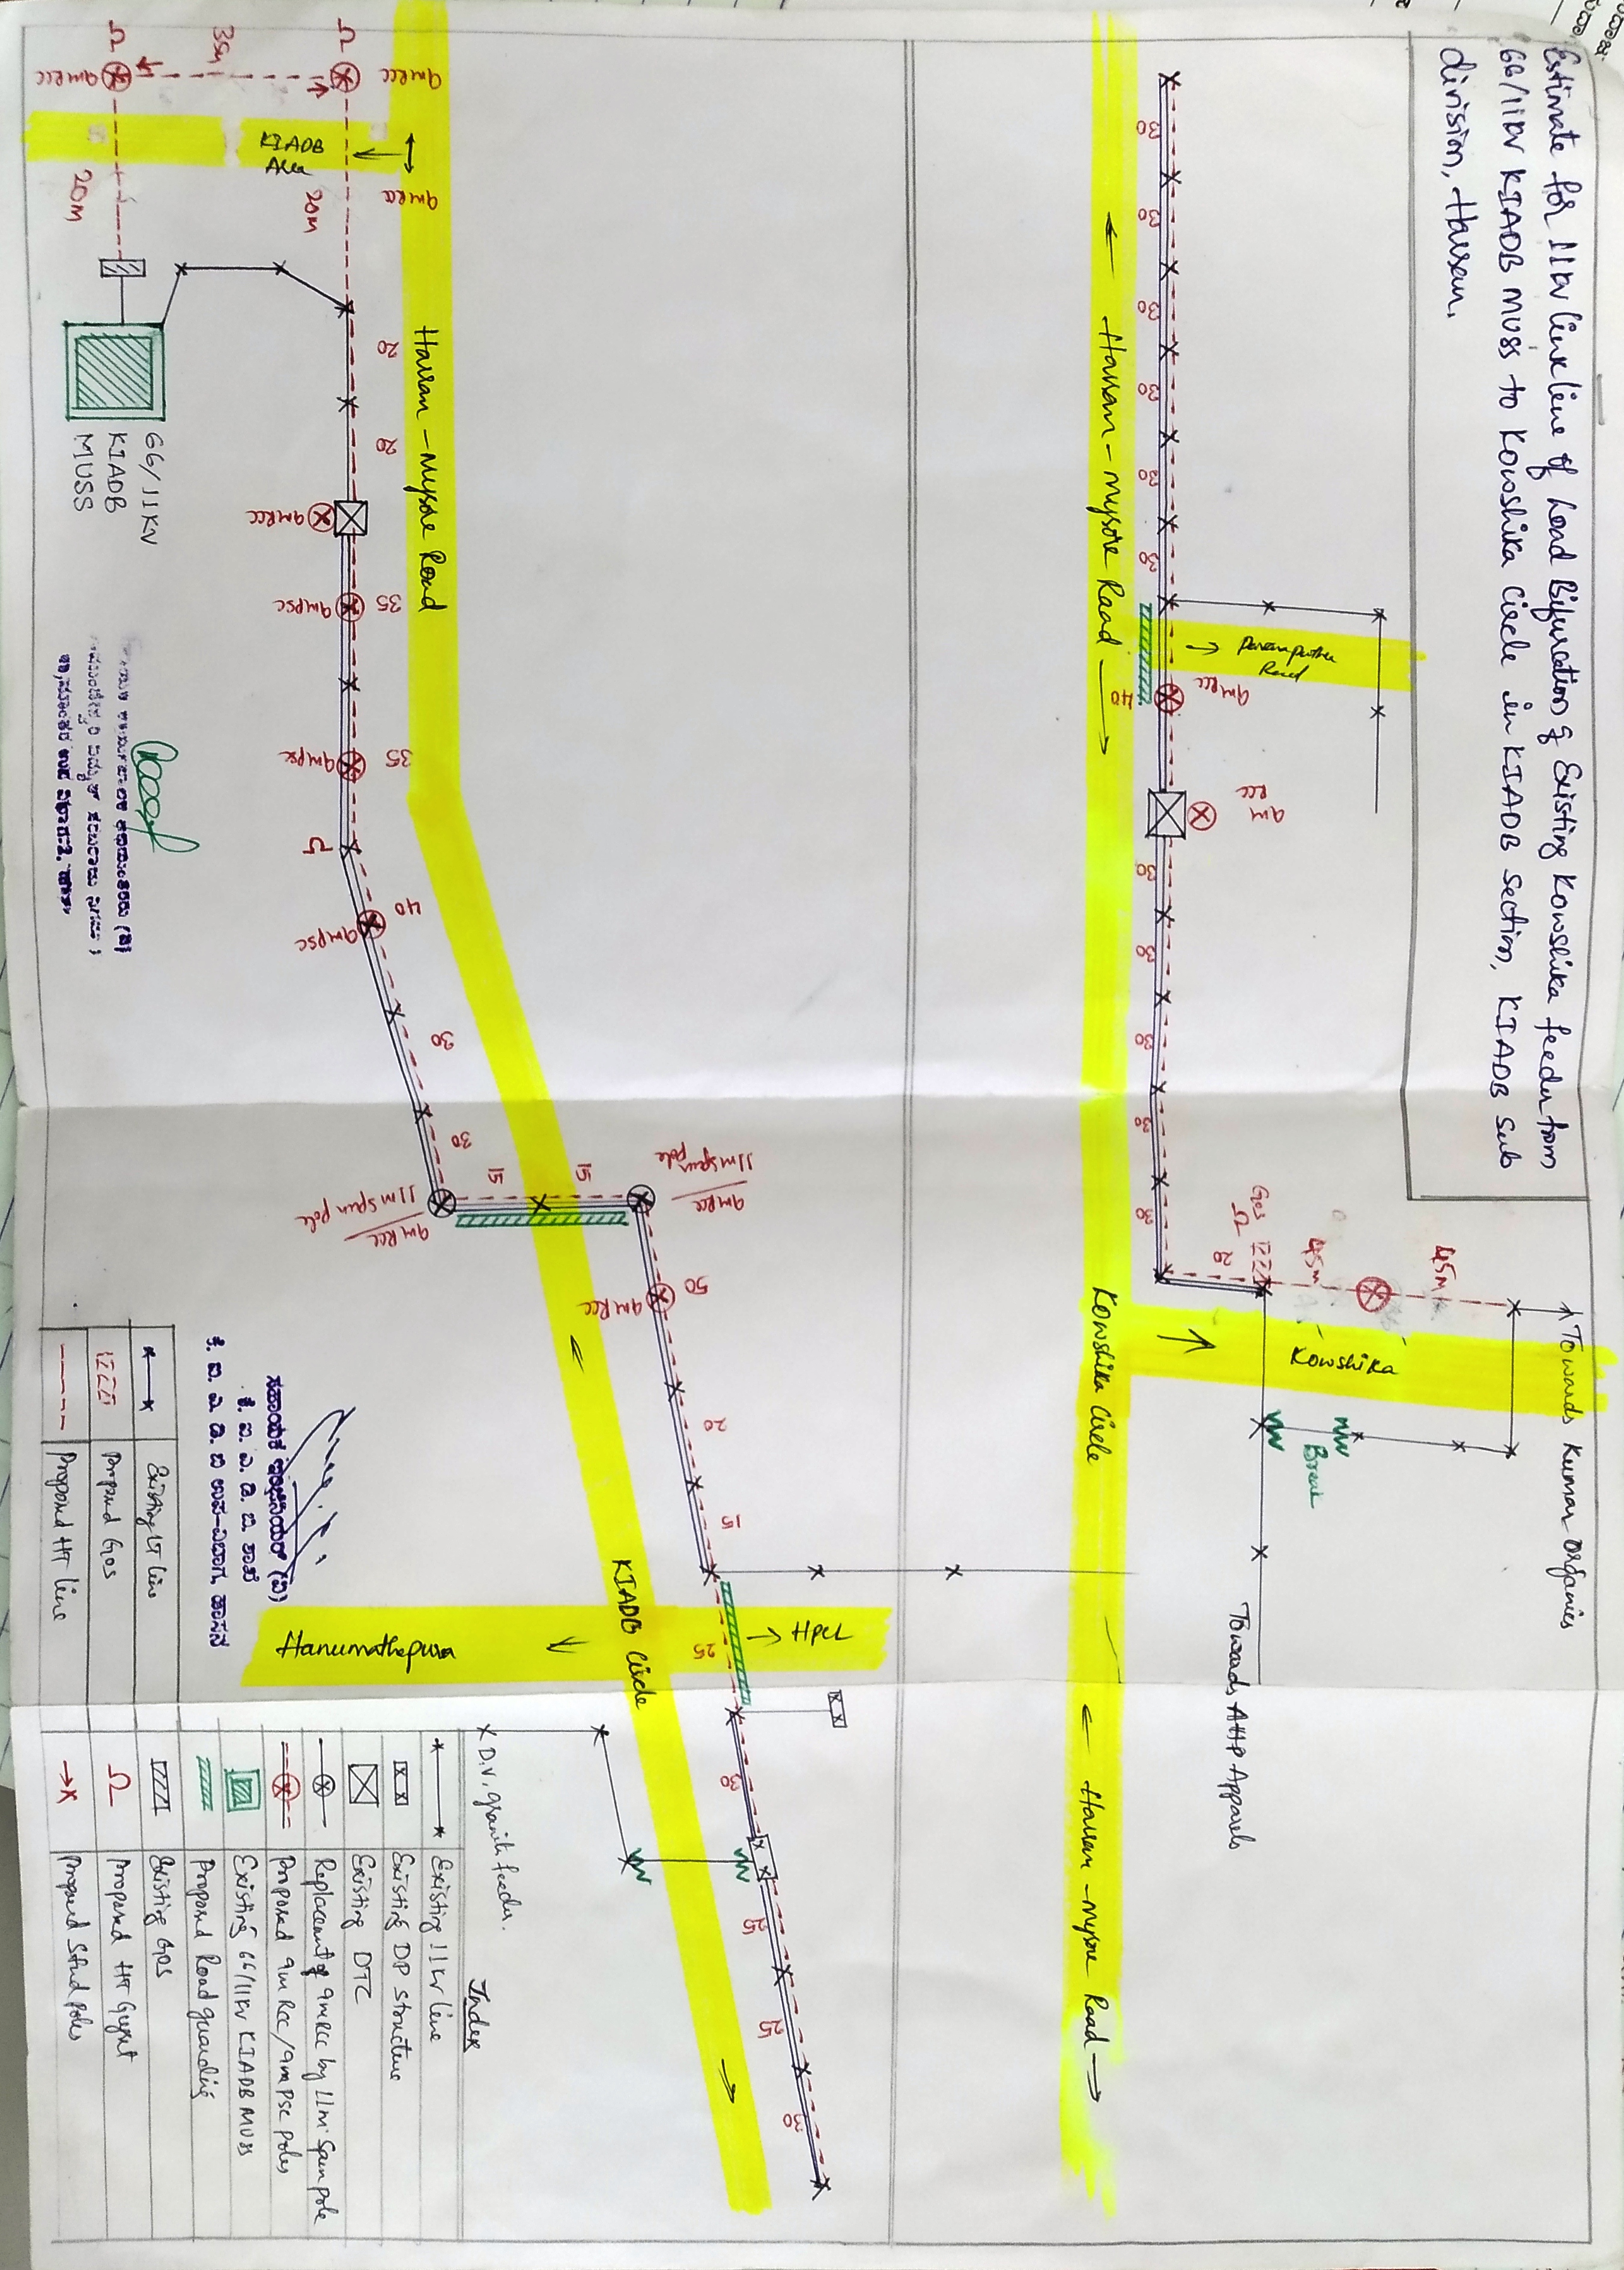 Estimate for 11kv link line of Load Bifurcation of Existing Kowshika feeder from
66/11kv KIADB MUSS to Kowshika Circle in KIADB Section, KIADB Sub
division, Hassan.
30
30
30
30
30
30
40
9mRCC
9m
RCC
30
30
30
30
30
20
GOS
45m
45m
← Hassan - Mysore Road →
Kowshika Circle
← Hassan - Mysore Road →
Kowshika
Break
Towards Kumar Organics
Towards AHP Apparels
35m
9mRCC
9mRCC
9mRCC
KIADB
Area
20m
20m
66/11KV
KIADB
MUSS
Hassan - Mysore Road
20
20
9mRCC
35
9mPSC
35
9mPSC
40
9mPSC
30
30
15
15
11m Spun pole
9mRCC
11m Spun
pole
9mRCC
50
9mRCC
20
15
25
HPCL
Hanumathapura
KIADB Circle
30
25
25
30
D.V. granite feeder.
ಕೆ. ಐ. ಎ. ಡಿ. ಬಿ ಉಪ-ವಿಭಾಗ, ಹಾಸನ
Existing LT line
Proposed GOS
Proposed HT line
Index
Existing 11kv line
Existing DP structure
Existing DTC
Replacement of 9mRCC by 11m Spun pole
Proposed 9m RCC/9m PSC poles
Existing 66/11kv KIADB MUSS
Proposed Road guarding
Existing GOS
Proposed HT Guyset
Proposed Stud poles